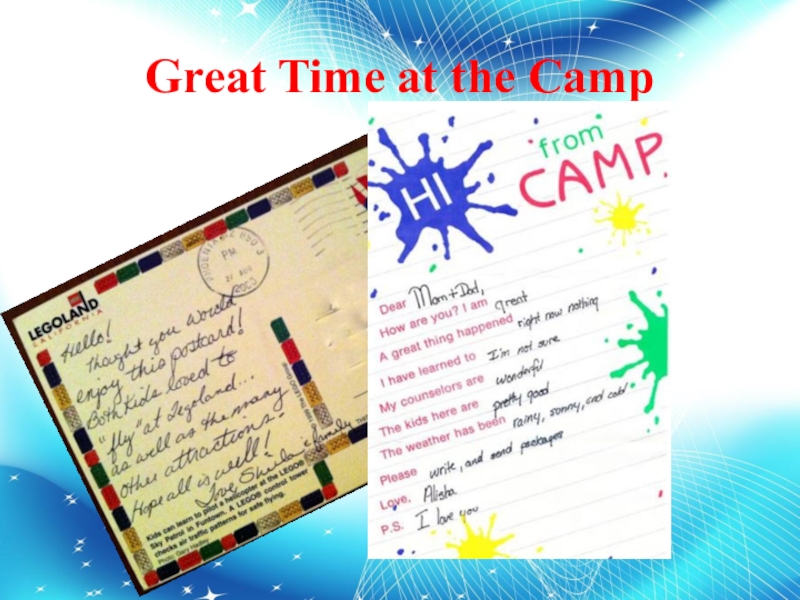 Great Time at the Camp
HI
from
CAMP
Dear Mom + Dad,
How are you? I am great
A great thing happened right now nothing
I have learned to I'm not sure
My counselors are wonderful
The kids here are pretty good
The weather has been rainy, sonny, and cold
Please write, and send packages
Love, Alisha
P.S. I love you
LEGOLAND
CALIFORNIA
PM
2003
Hello!
Thought you would
enjoy this postcard!
Both kids loved to
"fly" at Legoland...
as well as the many
other attractions.
Hope all is well!
Love, & family
Kids can learn to pilot a helicopter at the LEGO®
Sky Patrol in Funtown. A LEGO® control tower
checks air traffic patterns for safe flying.
Photo: